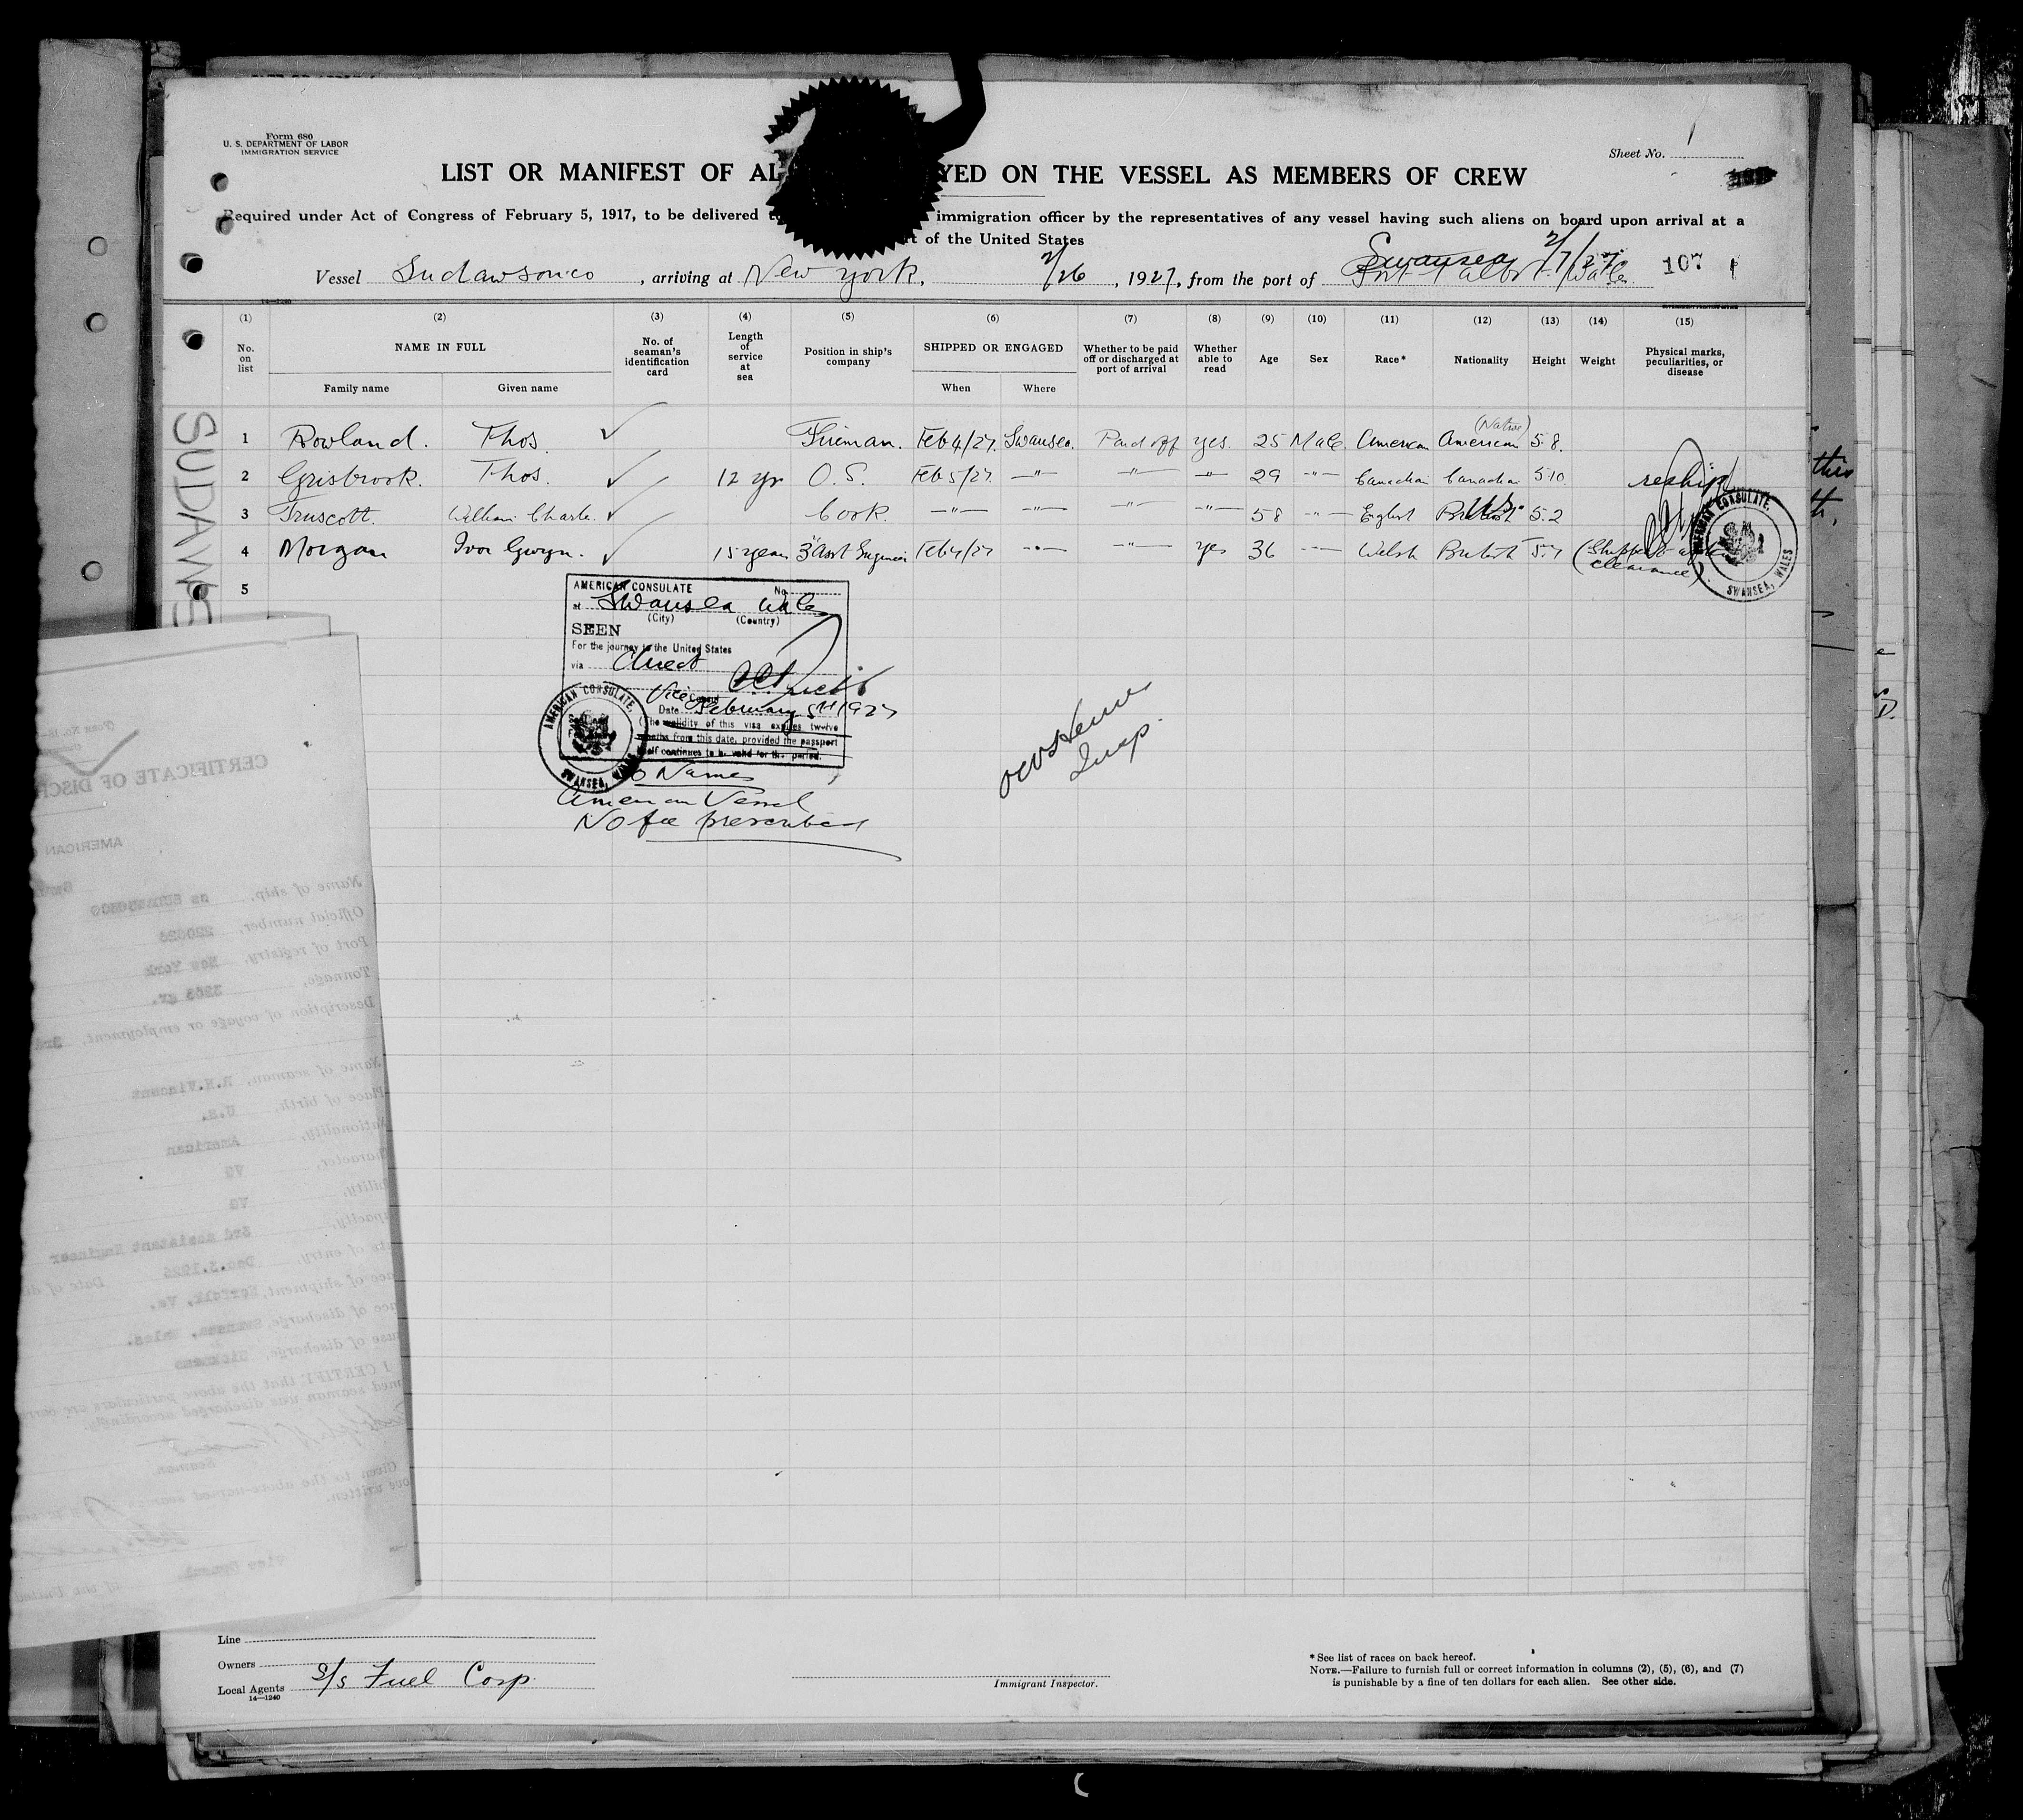 Form 680
U. S. DEPARTMENT OF LABOR
IMMIGRATION SERVICE
Sheet No. 1
LIST OR MANIFEST OF AL YED ON THE VESSEL AS MEMBERS OF CREW
Required under Act of Congress of February 5, 1917, to be delivered t immigration officer by the representatives of any vessel having such aliens on board upon arrival at a
t of the United States
Vessel Sudawsonco, arriving at New York, 2/26, 1927, from the port of Swansea 2/7/27 Port Talbot Wales 107
14-1240
(1) (2) (3) (4) (5) (6) (7) (8) (9) (10) (11) (12) (13) (14) (15)
No. on list NAME IN FULL Family name Given name No. of seaman's identification card Length of service at sea Position in ship's company SHIPPED OR ENGAGED When Where Whether to be paid off or discharged at port of arrival Whether able to read Age Sex Race* Nationality Height Weight Physical marks, peculiarities, or disease
SUDAWS
(Native)
1 Rowland. Thos. Fireman. Feb 4/27. Swansea. Paid off yes. 25 Male American American 5.8.
2 Grisbrook. Thos. 12 yr O.S. Feb 5/27. —"— —"— —"— 29 —"— Canadian Canadian 5.10. reship
3 Truscott. William Charles. Cook. —"— —"— —"— —"— 58 —"— English British 5.2
4 Morgan Ivor Gwyn. 15 years 3rd Asst Engineer Feb 4/27 —"— —"— yes 36 —"— Welsh British 5.7 (Shipped after
clearance).
5
AMERICAN CONSULATE, SWANSEA, WALES
AMERICAN CONSULATE No.
at Swansea Wales
(City) (Country)
SEEN
For the journey to the United States
via direct
Vice Consul
Date February 5th 1927
(The validity of this visa expires twelve
months from this date, provided the passport
itself continues to be valid for that period.
AMERICAN CONSULATE, SWANSEA, WALES
Names
American Vessel
No fee prescribed
Insp.
this
CERTIFICATE OF DISC
AMERICAN
Name of ship, ss SUDAWSONCO
Official number, 220026
Port of registry, New York
Tonnage, 3263 gr.
Description of voyage or employment,
Name of seaman, R.H.Vincent
Place of birth, U.S.
Nationality, American
Character, VG
ability, VG
capacity, 3rd assistant Engineer
te of entry, Dec.3.1926 Date of di
ace of shipment, Norfolk, Va.
ace of discharge, Swansea, Wales.
use of discharge, Sickness
I CERTIFY that the above particulars are corr
med seaman was discharged accordingly.
Seaman.
Given to the above-named seaman
ove written.
Vice Consul of the United
Line
Owners
Local Agents S/S Fuel Corp.
14—1240
Immigrant Inspector.
* See list of races on back hereof.
NOTE.—Failure to furnish full or correct information in columns (2), (5), (6), and (7)
is punishable by a fine of ten dollars for each alien. See other side.